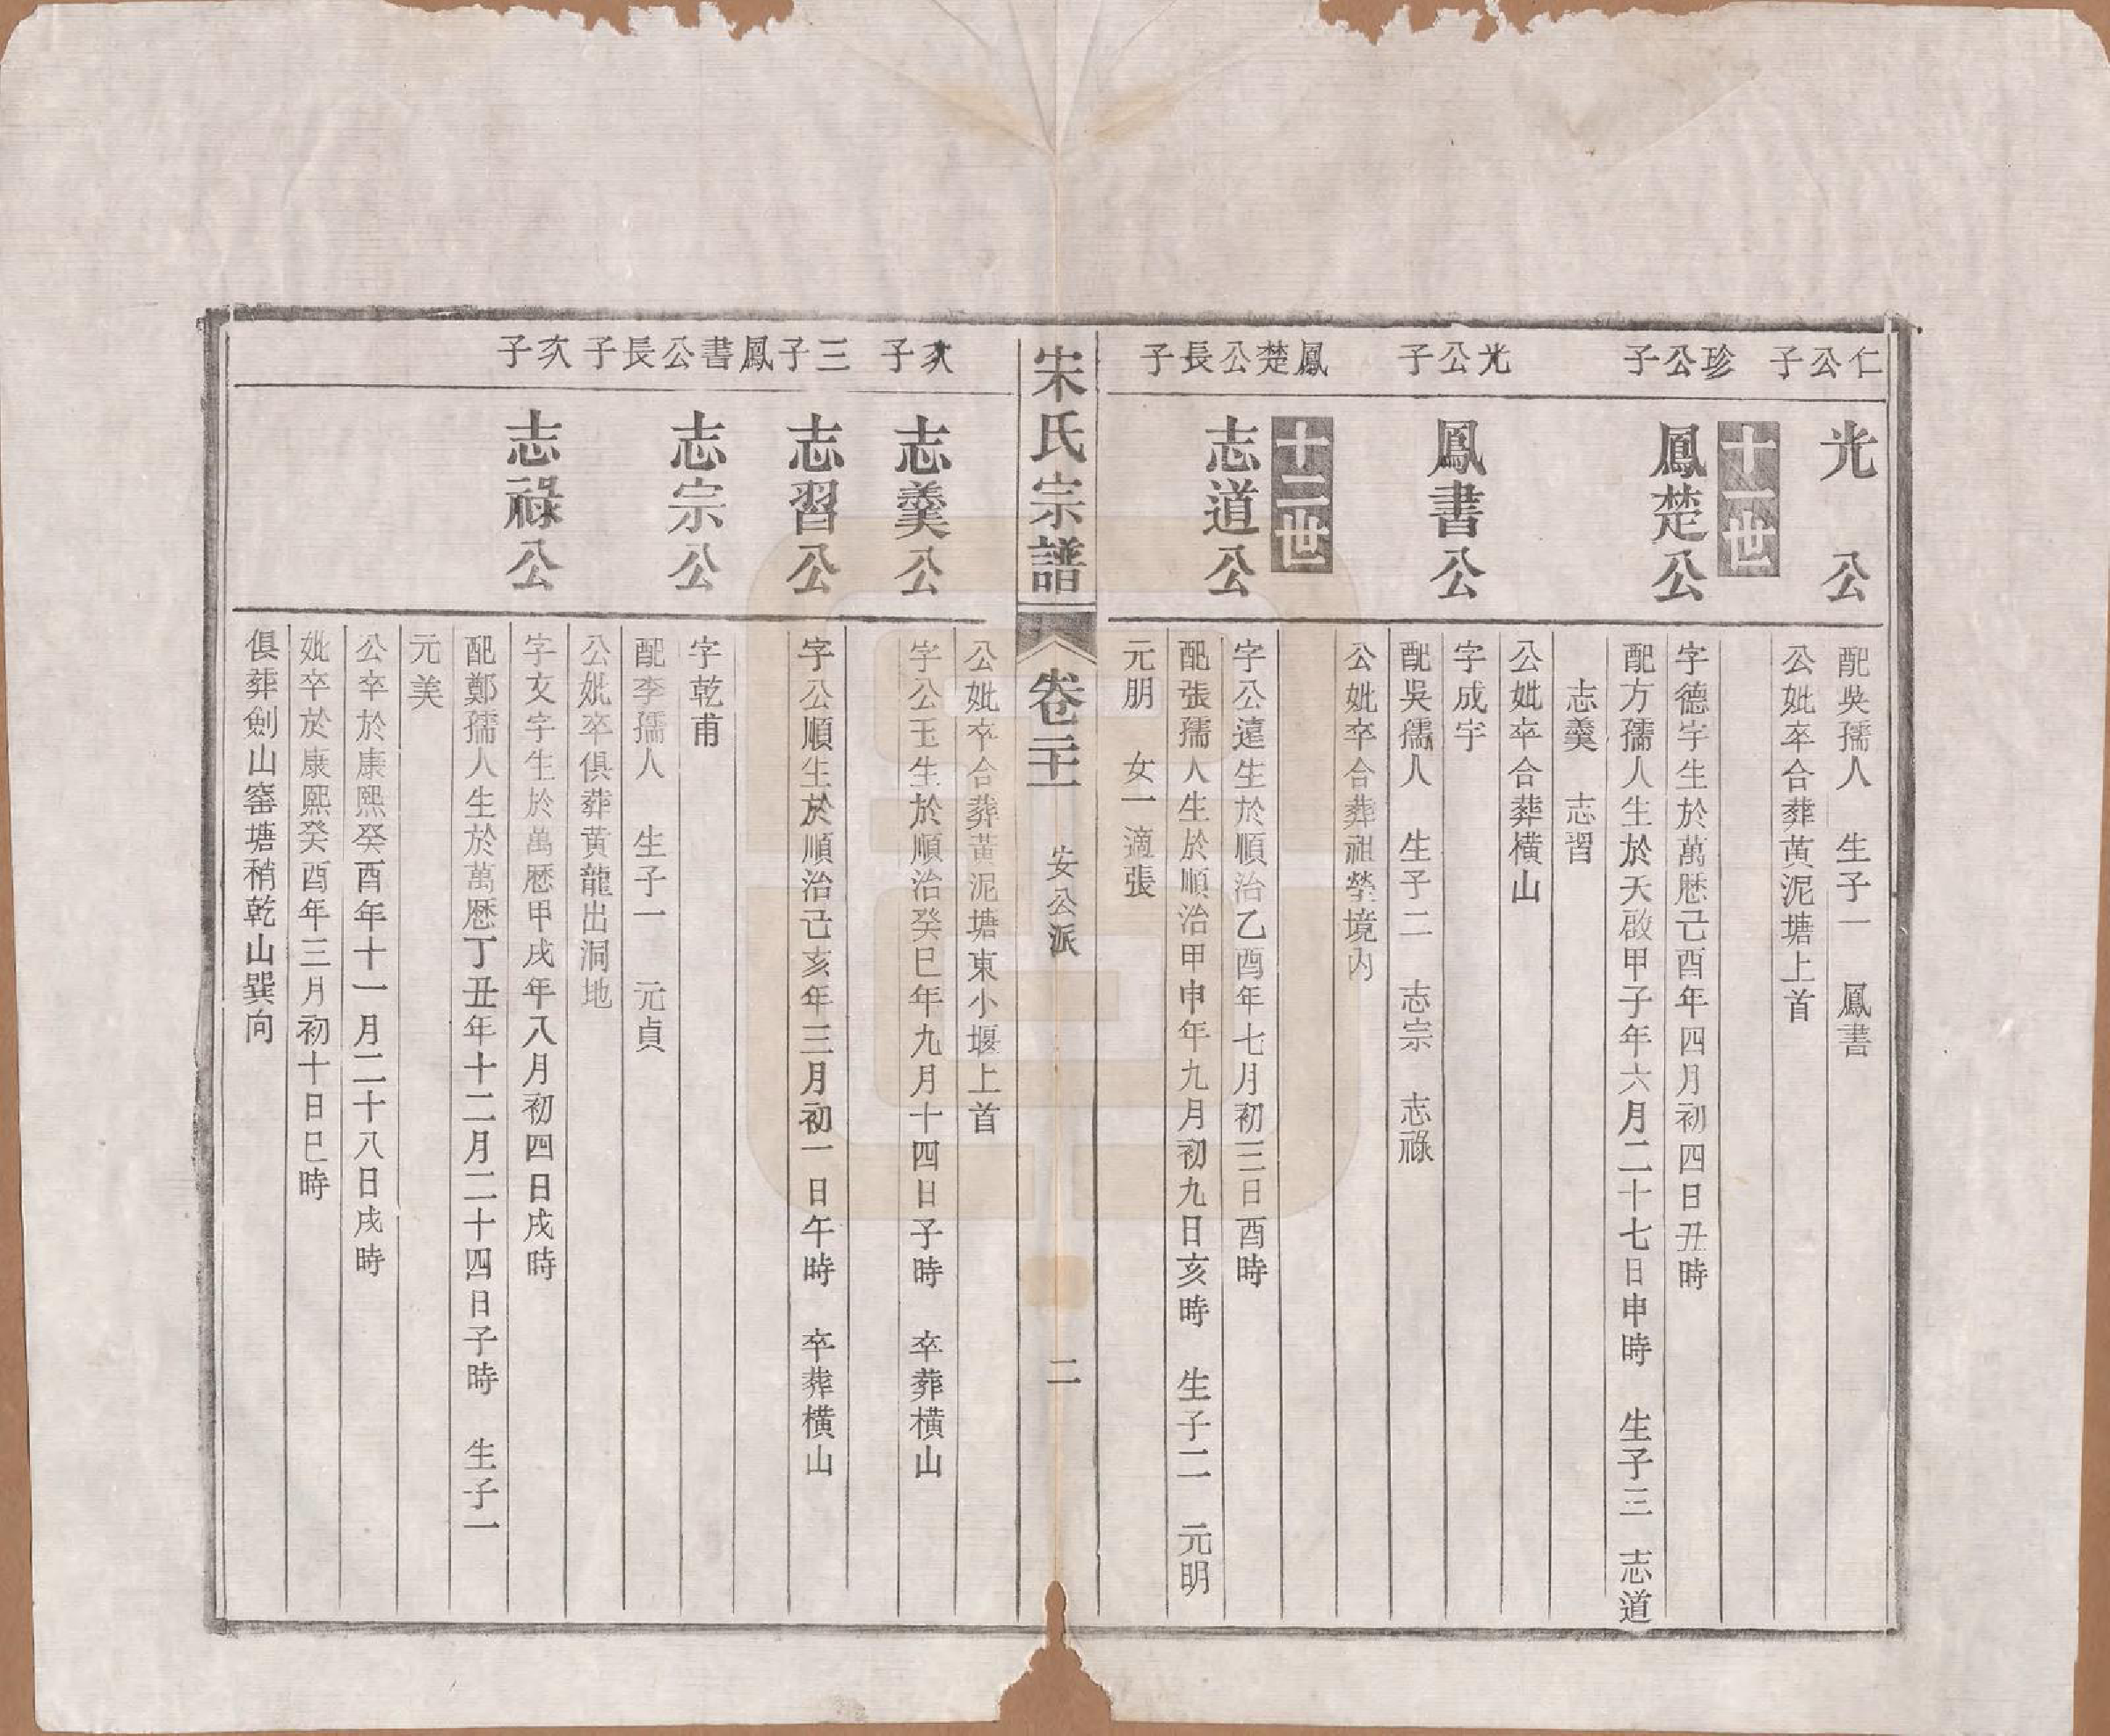 仁公子
光公
配吳孺人　生子一　鳳書
公妣卒合葬黃泥塘上首
十一世
珍公子
鳳楚公
字德宇生於萬厯己酉年四月初四日丑時
配方孺人生於天啟甲子年六月二十七日申時　生子三　志道
志羹　志習
公妣卒合葬橫山
光公子
鳳書公
字成宇
配吳孺人　生子二　志宗　志祿
公妣卒合葬祖塋境內
十二世
鳳楚公長子
志道公
字公遠生於順治乙酉年七月初三日酉時
配張孺人生於順治甲申年九月初九日亥時　生子二　元明
元朋　女一適張
宋氏宗譜
卷二十一
安公派
二
公妣卒合葬黃泥塘東小堰上首
次子
志羹公
字公玉生於順治癸巳年九月十四日子時　卒葬橫山
三子
志習公
字公順生於順治己亥年三月初一日午時　卒葬橫山
鳳書公長子
志宗公
字乾甫
配李孺人　生子一　元貞
公妣卒俱葬黃龍出洞地
次子
志祿公
字文宇生於萬厯甲戌年八月初四日戌時
配鄭孺人生於萬厯丁丑年十二月二十四日子時　生子一
元美
公卒於康熙癸酉年十一月二十八日戌時
妣卒於康熙癸酉年三月初十日巳時
俱葬劍山窰塘稍乾山巽向